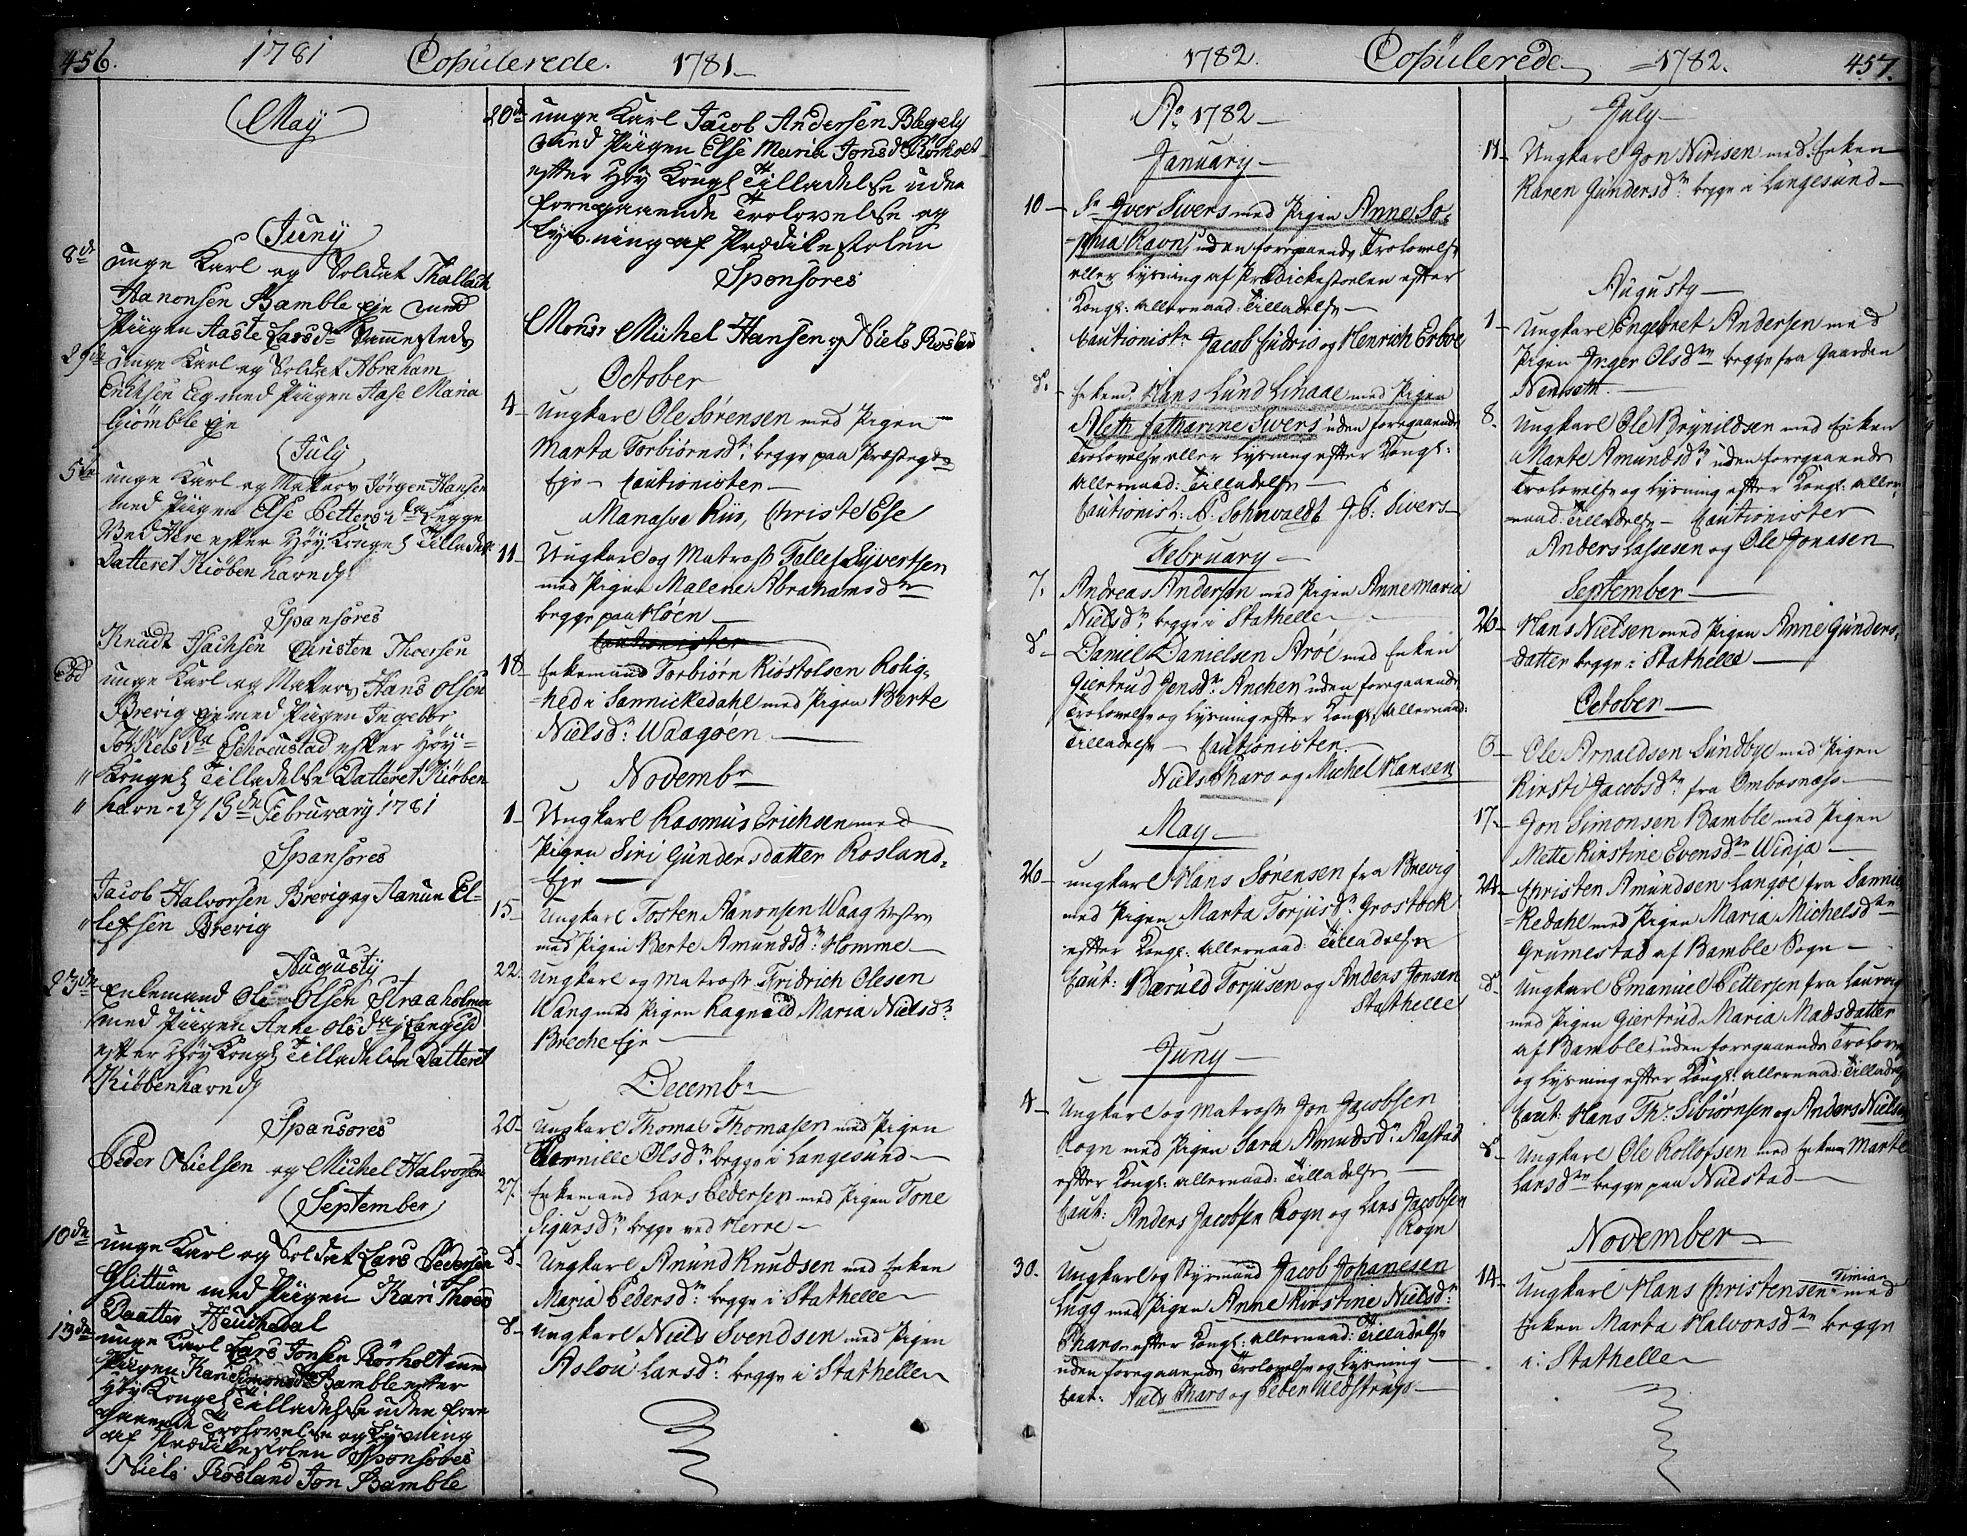 456. 1781 Copulerede. 1781
May
Juny
8de unge Karl og Soldat Thallach
Aanonsen Bamble Eje med
Piigen Aaste Larsd
29de unge Karl og Soldat Abraham
Erichsen Eeg med Piigen Aase Maria
Giömble Eje
July
5te unge Karl og Matros Jörgen Hansen
med Piigen Else Petters da begge
Ved Here efter Höy Kongel Tilladelse
Datteret Kiöbenhavn d
Spansores
Knudt Isachsen Christen Thoersen
Ebd unge Karl og Matros Hans Olsen
Brevig Eje med Piigen Ingebor
efter Höy=
" Kongel Tilladelse Datteret Kiöben
" havn d 15de Februrary 1781
Spansores
Jacob Halvorsen Brevig og Aanun El=
" lefsen Brevig
Augusty
23de Enkemand Ole Olsen Straaholmen
med Piigen Anne Olsda i Langesd
efter Höy Kongl Tilladelse Datteret
Kiöbenhavn d
Spansores
Peder Nielsen og Michel Halvorsen
September
10de unge Karl og Soldat Lars Pedersen
Glittum med Piigen Kari Thoes
Daatter Heuchedal
13de unge Karl Lars Jonsen Rörholt med
Piigen Karen Simonsd Bamble efter
Höy Kongel Tilladelse uden fore
gaaende Trolovelse og Lysning
af Prædikestolen Sponsores
Niels Rosland Jon Bamble
20de unge Karl Jacob Andersen Blegely
med Piigen Else Maria Jonsd Rörholt
efter Höy Kongl Tilladelse uden
foregaaende Trolovelse og
Lysning af Prædikestolen
Sponsores
Monsr Michel Hansen og Niels Rosland
October
4 Ungkarl Ole Sörensen med Pigen
Marta Torbiörnsd: begge paa Præstegds
Eje – Cautionister
Manasse Riis, Christe Else
11 Ungkarl og Matross Tallef Syvertsen
med Pigen Malene Abrahamsdtr
begge paa Höen
Cautionister
18 Enkemand Torbiörn Kiöstolsen Rolig=
=hed i Sannickedahl med Pigen Berte
Nielsd: Waagöen
Novembr
1 Ungkarl Rasmus Erichsen med
Pigen Siri Gundersdatter Rosland=
Eje
15 Ungkarl Tosten Aanonsen Waag Vestre
med Pigen Berte Amundsd: Homme
22 Ungkarl og Matross Fridrich Olesen
Wang med Pigen Ragnild Maria Nielsdr
Breche Eje
Decembr
20 Ungkarl Thomas Thomasen med Pigen
Pernille Olsd: begge i Langesund
27. Enkemand Lars Pedersen med Pigen Tone
Sigursd: begge ved Herre
d Ungkarl Amund Knudsen med Enken
Maria Pedersd: begge i Stathelle
d Ungkarl Niels Svendsen med Pigen
Aslou Larsd: begge i Stathelle
1782. Copulerede 1782. 457.
Ao 1782
January
10 Sr Iver Sivers med Pigen Anne So=
=phia Ravn uden foregaaende Trolovelse
eller Lysning af Prædickestoelen efter
Kongl: Allernaad: Tilladelse
Cautionister Jacob Hudris og Henrich Erboe
d. Enkemd. Hans Lund Linaae med Pigen
Aleth Catharine Sivers uden foregaaende
Trolovelse eller Lysning efter Kongl:
Allernaad: Tilladelse
Cautionist: P. Schwaldt J. P: Sivers
February
7. Andreas Andersen med Pigen Anne Maria
Nielsd: begge i Stathelle
d Daniel Danielsen Aröe med Enken
Giertrud Jensd: Anchen uden foregaaende
Trolovelse og Lysning efter Kongl: Allernaad:
Tilladelse – Cautionister.
Niels Charo og Michel Hansen
May
26 ungkarl Hans Sörensen fra Brevig
med Pigen Marta Torjusd: Grostock
efter Kongl: Allernaad: Tilladelse
Caut: Bæruld Torjusen og Anders Jonsen
Stathelle
Juny
4 Ungkarl og Matross Jon Jacobsen
Rogn med Pigen Sara Amundsd: Aastad
efter Kongl: Allernaad: Tilladelse
Caut: Anders Jacobsen Rogn og Lars Jacobsen
Rogn
30. Ungkarl og Styrmand Jacob Johanesen
Lugg med Pigen Anne Kirstine Nielsd:
Charo efter Kongl: Allernaad: Tilladelse
uden foregaaende Trolovelse og Lysning
Caut: Niels Charo og Peder Uldstrup
July
11 Ungkarl Jon Nirisen med Enken
Karen Gundersdtr begge i Langesund
Augusty
1 Ungkarl Engebret Andersen med
Pigen Inger Olsdtr begge fra Gaarden
Nenseth
8. Ungkarl Ole Brynildsen med Enken
Marte Amundsd: uden foregaaende
Trolovelse og Lysning efter Kongl: Aller=
=naad: Tilladelse – Cautionister
Anders Lassesen og Ole Jonasen
September
26 Hans Nielsen med Pigen Anne Gunders=
datter begge i Stathelle
October
Ole Arnaldsen Sundbye med Pigen
Kirsti Jacobsdtr fra Ombosnæs
17. Jon Simonsen Bamble med Pigen
Mette Kirstine Evensdtr Winja
24. Christen Amundsen Langöe fra Sannic=
=kedahl med Pigen Maria Michelsdtr
Grumestad af Bamble Sogn
d. Ungkarl Emanuel Pettersen fra Laurvig
med Pigen Giertrud Maria Madsdatter
af Bamble uden foregaaende Trolovelse
og Lysning efter Kongl: Allernaad: Tilladelse
Caut: Hans Thr Sibiörnsen og Anders Nielsen
d Ungkarl Ole Rollofsen med Enken Marte
Larsdtr begge paa Nustad
November
14. Ungkarl Hans Christensen Timian med
Enken Marta Halvorsdtr begge
i Stathelle